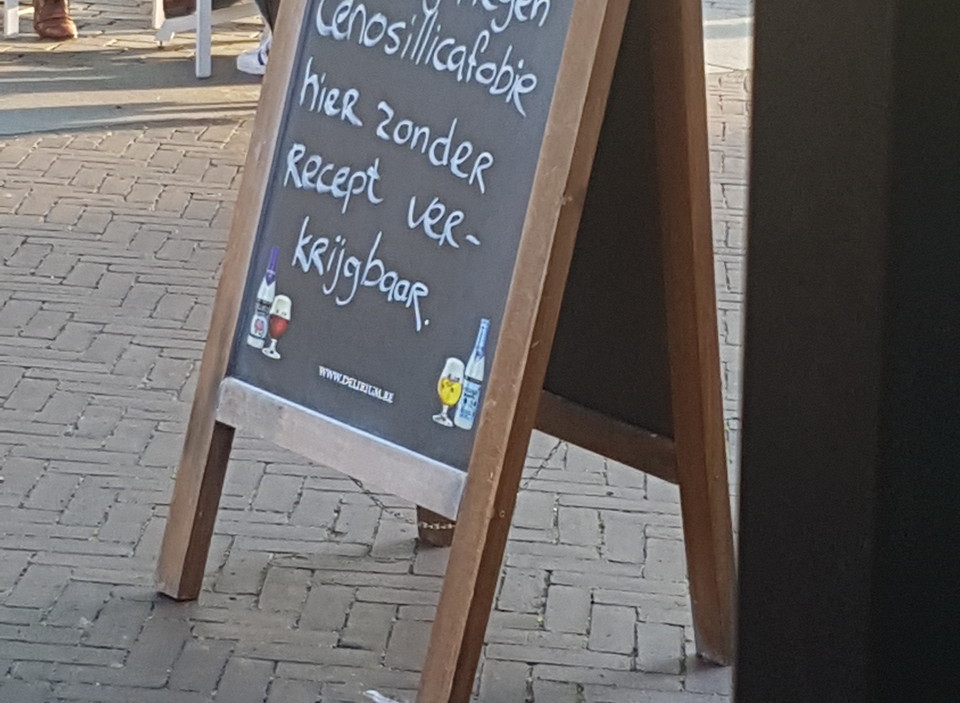 Cenosillicafobie
hier zonder
Recept ver-
krijgbaar.
WWW.DELIRIUM.BE